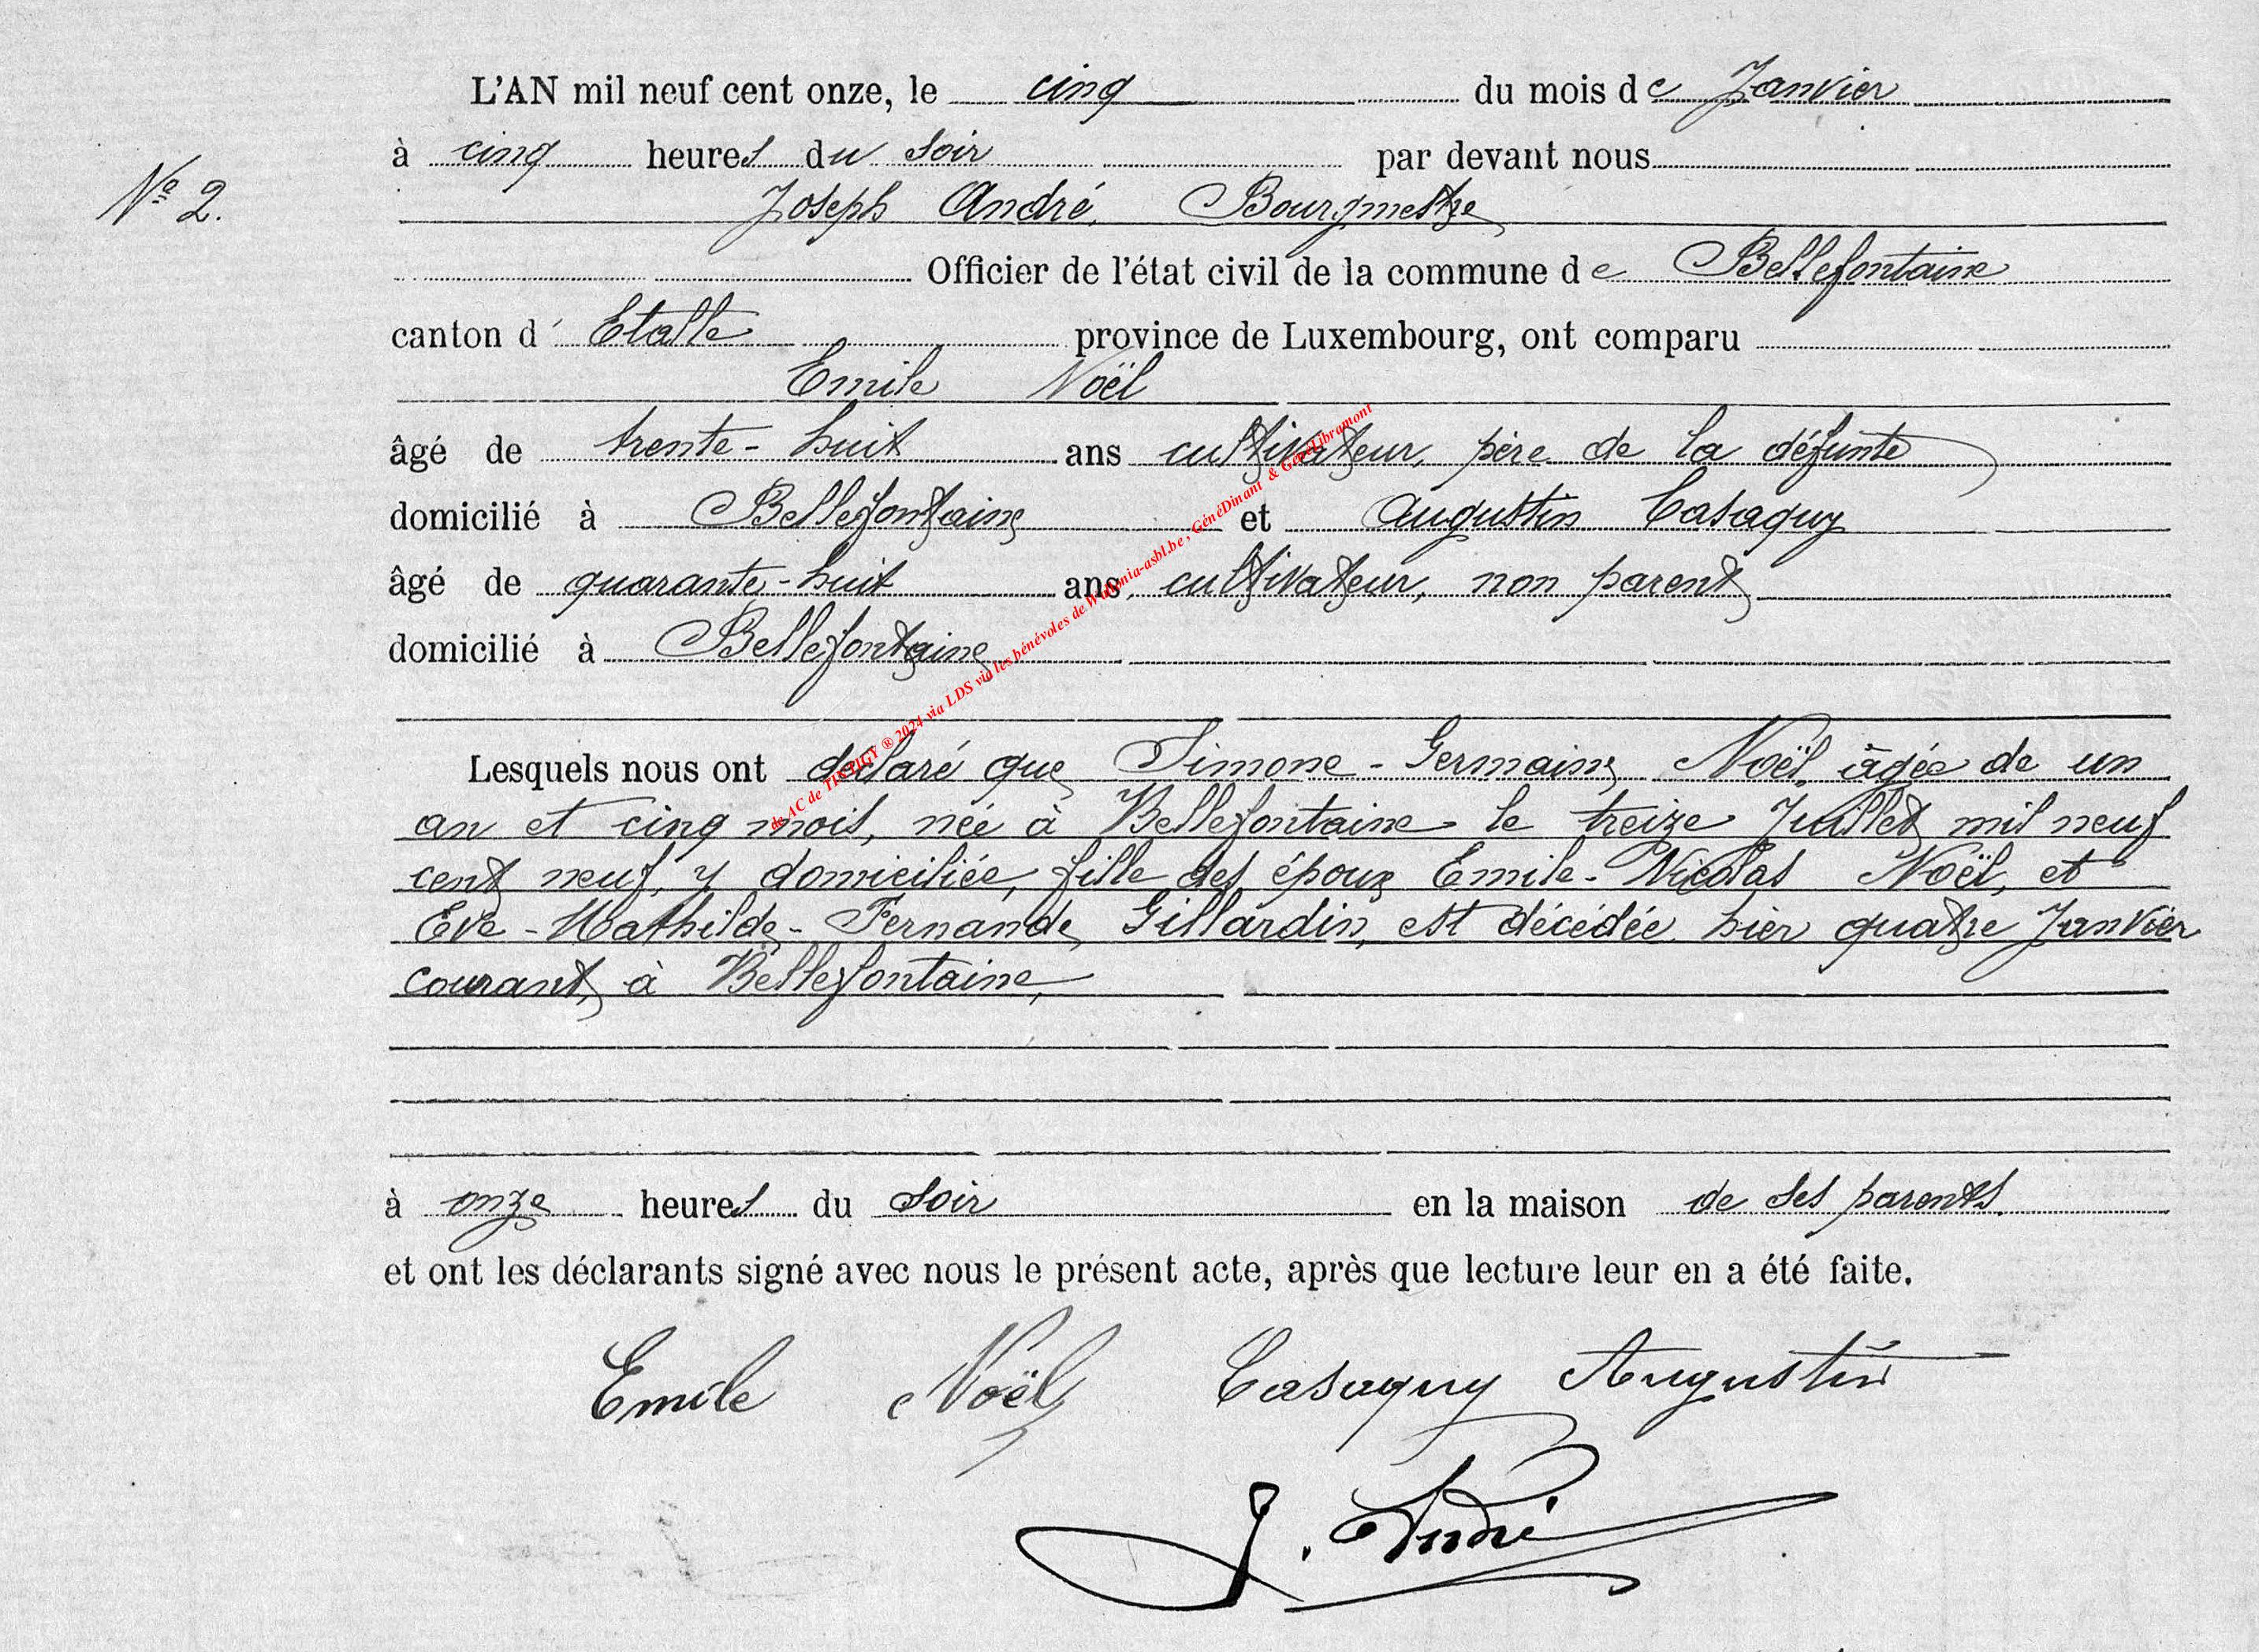 L'AN mil neuf cent onze, le cinq du mois de Janvier
à cinq heures du soir par devant nous
N° 2.
Joseph André, Bourgmestre
Officier de l'état civil de la commune de Bellefontaine
canton d'Etalle province de Luxembourg, ont comparu
Emile Noël
âgé de trente-huit ans cultivateur, père de la défunte
domicilié à Bellefontaine et Augustin Casaquy
âgé de quarante-huit ans, cultivateur, non parent
domicilié à Bellefontaine
Lesquels nous ont déclaré que Simone-Germaine Noël, âgée de un
an et cinq mois, née à Bellefontaine le treize Juillet mil neuf
cent neuf, y domiciliée, fille des époux Emile-Nicolas Noël, et
Eve-Mathilde-Fernande Gillardin, est décédée hier quatre Janvier
courant, à Bellefontaine,
à onze heures du soir en la maison de ses parents.
et ont les déclarants signé avec nous le présent acte, après que lecture leur en a été faite.
Emile Noël Casaquy Augustin
J. André
de AC de TINTIGY ® 2024 via LDS via les bénévoles de Wallonia-asbl.be, GénéDinant & GénéLibramont